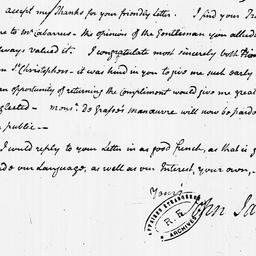 accept my Thanks for your friendly Letter. I find your
re to Mr. Cabarrus — the opinion of the Gentleman you
lways valued it. I congratulate most sincerely both
n St. Christophers. it was kind in you to give me such early
n opportunity of returning the Compliment would give me great
glected — Monsr. de Grasse's manœuvre will now be
public —
I would reply to your Letter in as good french, as that is
do our Language, as well as our Interest, your own,
Yours
John Ja
AFFAIRES ETRANGERES
ARCHIVES